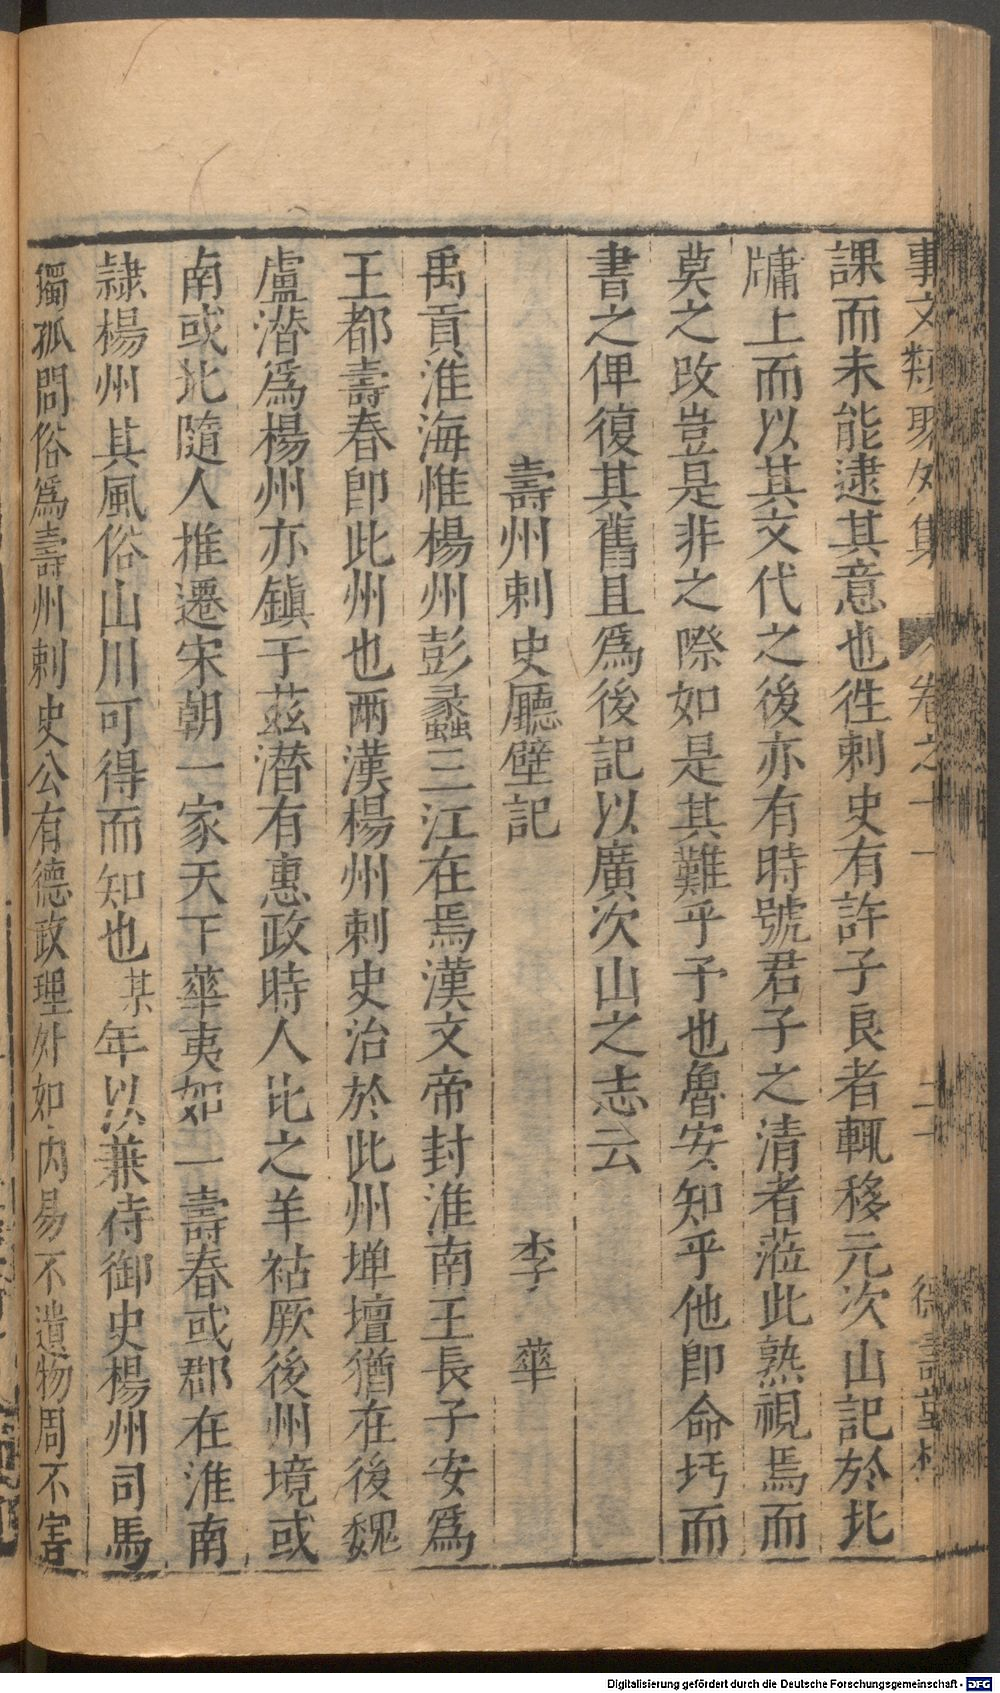 事文類聚外集 卷之十一 二十一 德壽堂梓
課而未能逮其意也徃刺史有許子良者輒移元次山記於北
牗上而以其文代之後亦有時號君子之清者蒞此熟視焉而
莫之改豈是非之際如是其難乎予也魯安知乎他即命圬而
書之俾復其舊且爲後記以廣次山之志云
壽州刺史廳壁記 李華
禹貢淮海惟楊州彭蠡三江在焉漢文帝封淮南王長子安爲
王都壽春即此州也兩漢楊州刺史治於此州墠壇猶在後魏
盧潜爲楊州亦鎮于茲潜有惠政時人比之羊祜厥後州境或
南或北隨人推遷宋朝一家天下華夷如一壽春或郡在淮南
隷楊州其風俗山川可得而知也某年以兼侍御史楊州司馬
獨孤問俗爲壽州刺史公有德政理外如内易不遺物周不害
Digitalisierung gefördert durch die Deutsche Forschungsgemeinschaft - DFG